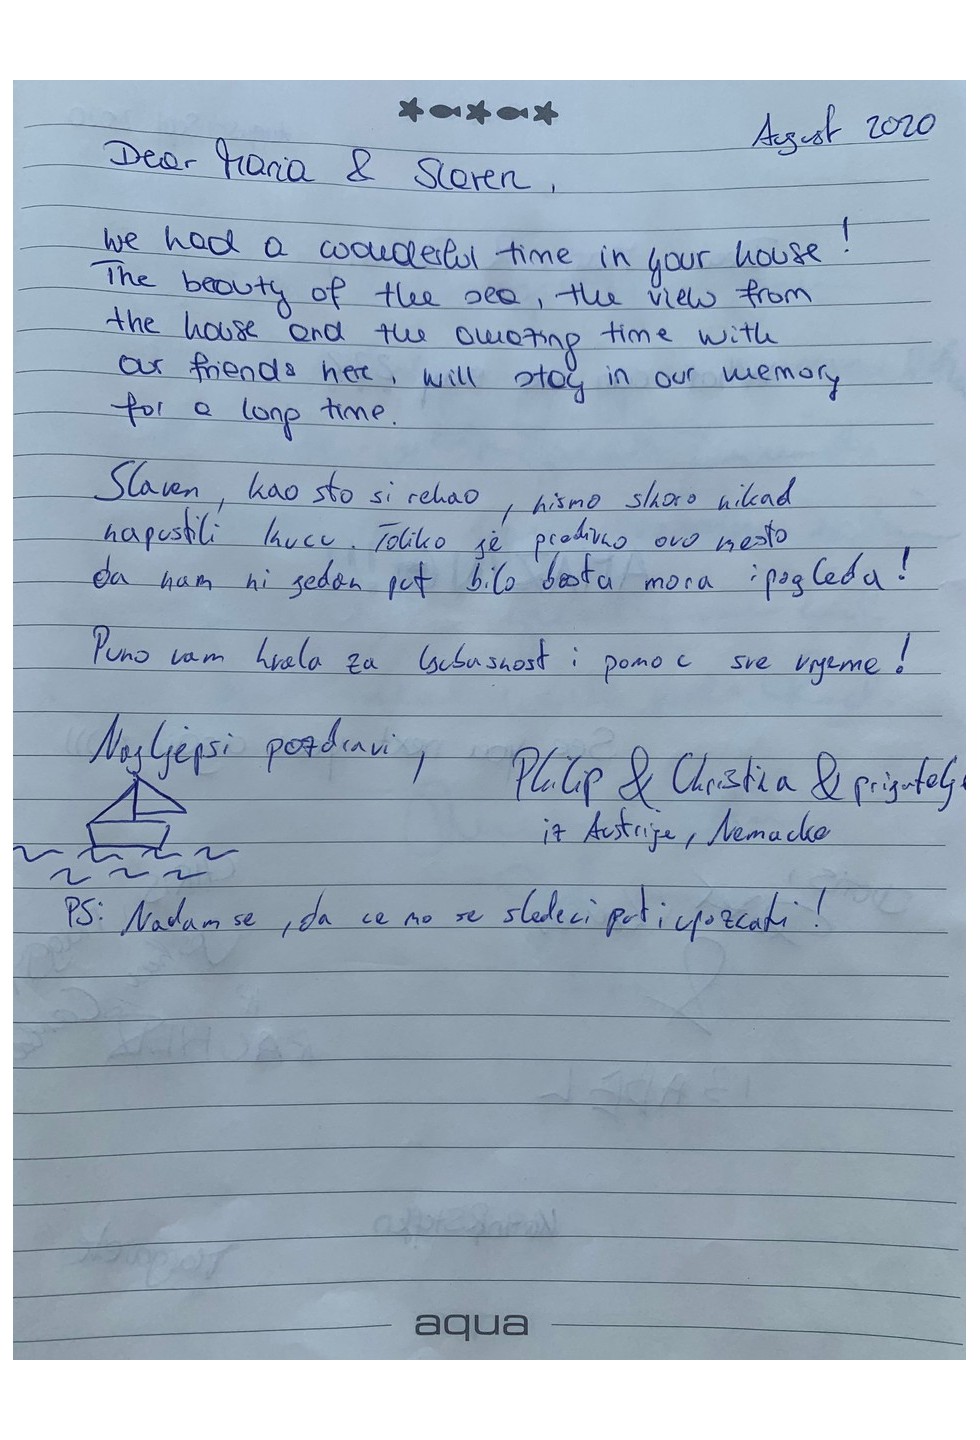 August 2020
Dear Maria & Slaven,
we had a wonderful time in your house!
The beauty of the sea, the view from
the house and the amazing time with
our friends here, will stay in our memory
for a long time.
Slaven, kao sto si rekao, nismo skoro nikad
napustili kucu. Toliko je predivno ovo mesto
da nam ni jedan put bilo dosta mora i pogleda!
Puno vam hvala za ljubasnost i pomoc sve vrijeme!
Najljepsi pozdravi,
Philip & Christina & prijatelji
iz Austrije, Nemacke
PS: Nadam se, da ce mo se sledeci put i upoznati!
aqua